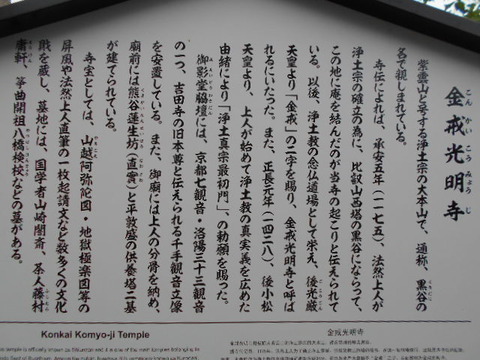 金戒光明寺
こんかいこうみょうじ
紫雲山と号する浄土宗の大本山で、通称、黒谷の
名で親しまれている。
寺伝によれば、承安五年(一一七五)、法然上人が
浄土宗の確立の為に、比叡山西塔の黒谷にならって、
この地に庵を結んだのが当寺の起こりと伝えられて
いる。以後、浄土教の念仏道場として栄え、後光厳
天皇より、「金戒」の二字を賜り、金戒光明寺と呼ば
れるにいたった。また、正長元年(一四二八)、後小松
天皇より、上人が始めて浄土教の真実義を広めた
由緒により「浄土真宗最初門」、の勅願を賜った。
御影堂脇壇には、京都七観音・洛陽三十三観音
の一つ、吉田寺の旧本尊と伝えられる千手観音立像
を安置している。また、御廟には上人の分骨を納め、
廟前には熊谷蓮生坊(直実)と平敦盛の供養塔二基
が建てられている。
寺宝としては、山越阿弥陀図・地獄極楽図等の
屏風や法然上人直筆の一枚起請文など数多くの文化
財を蔵し、墓地には、国学者山崎闇斎、茶人藤村
庸軒、箏曲開祖八橋検校などの墓がある。
Konkai Komyo-ji Temple
金戒光明寺